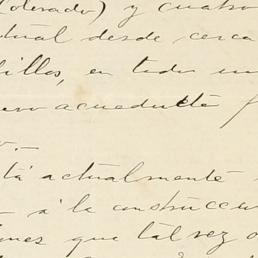 (dorado) y cuatro
tual desde cerca
illos, en todo un
evo acueducto
tá actualmente
- á la construcci
ones que tal vez